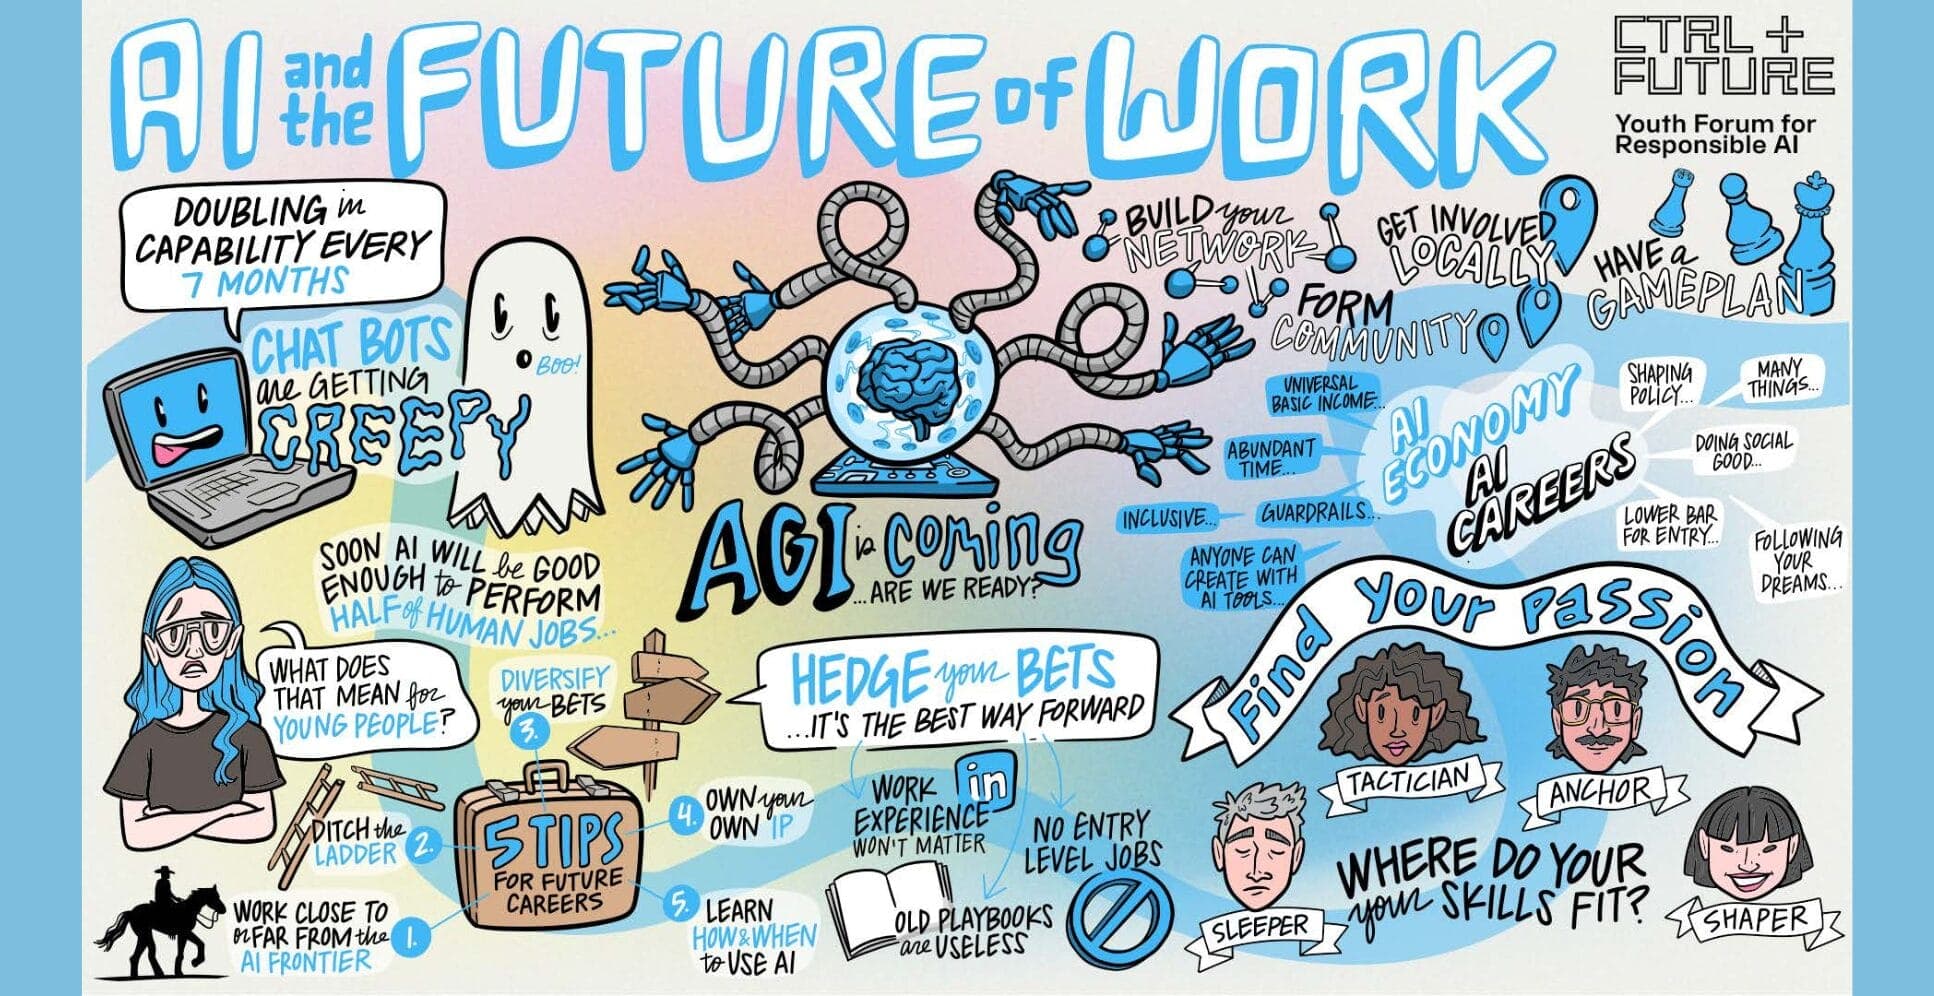 AI and the FUTURE of WORK
CTRL +
FUTURE
Youth Forum for
Responsible AI
DOUBLING in
CAPABILITY EVERY
7 MONTHS
CHAT BOTS
are GETTING
CREEPY
BOO!
BUILD your
NETWORK
GET INVOLVED
LOCALLY
HAVE a
GAMEPLAN
FORM
COMMUNITY
AGI is coming
...ARE WE READY?
AI
ECONOMY
UNIVERSAL
BASIC INCOME...
ABUNDANT
TIME...
INCLUSIVE...
GUARDRAILS...
ANYONE CAN
CREATE WITH
AI TOOLS...
AI
CAREERS
SHAPING
POLICY...
MANY
THINGS...
DOING SOCIAL
GOOD...
LOWER BAR
FOR ENTRY...
FOLLOWING
YOUR
DREAMS...
SOON AI WILL be GOOD
ENOUGH to PERFORM
HALF of HUMAN JOBS...
WHAT DOES
THAT MEAN for
YOUNG PEOPLE?
5 TIPS
FOR FUTURE
CAREERS
1.
WORK CLOSE TO
or FAR FROM the
AI FRONTIER
2.
DITCH the
LADDER
3.
DIVERSIFY
your BETS
4.
OWN your
OWN IP
5.
LEARN
HOW & WHEN
to USE AI
HEDGE your BETS
...IT'S THE BEST WAY FORWARD
WORK
EXPERIENCE
WON'T MATTER
in
OLD PLAYBOOKS
are USELESS
NO ENTRY
LEVEL JOBS
Find your passion
TACTICIAN
ANCHOR
SLEEPER
SHAPER
WHERE DO YOUR
your SKILLS FIT?